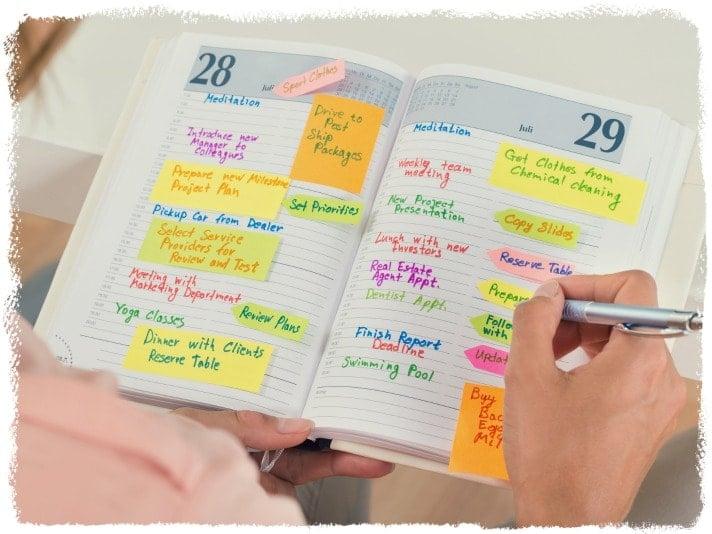 28
Juli
Sport Clothes
Meditation
Drive to
Post
Ship
Packages
Introduce new
Manager to
Prepare new Milestone
Project Plan
Set Priorities
Pickup Car from Dealer
Select Service
Providers for
Review and Test
Meeting with
Marketing Department
Review Plans
Yoga Classes
Dinner with Clients
Reserve Table
Juli
29
Meditation
Get Clothes from
Chemical cleaning
Weekly team
meeting
New Project
Presentation
Copy Slides
Lunch with new
Investors
Reserve Table
Real Estate
Agent Appt.
Dentist Appt.
Finish Report
Deadline
Swimming Pool
with
Buy